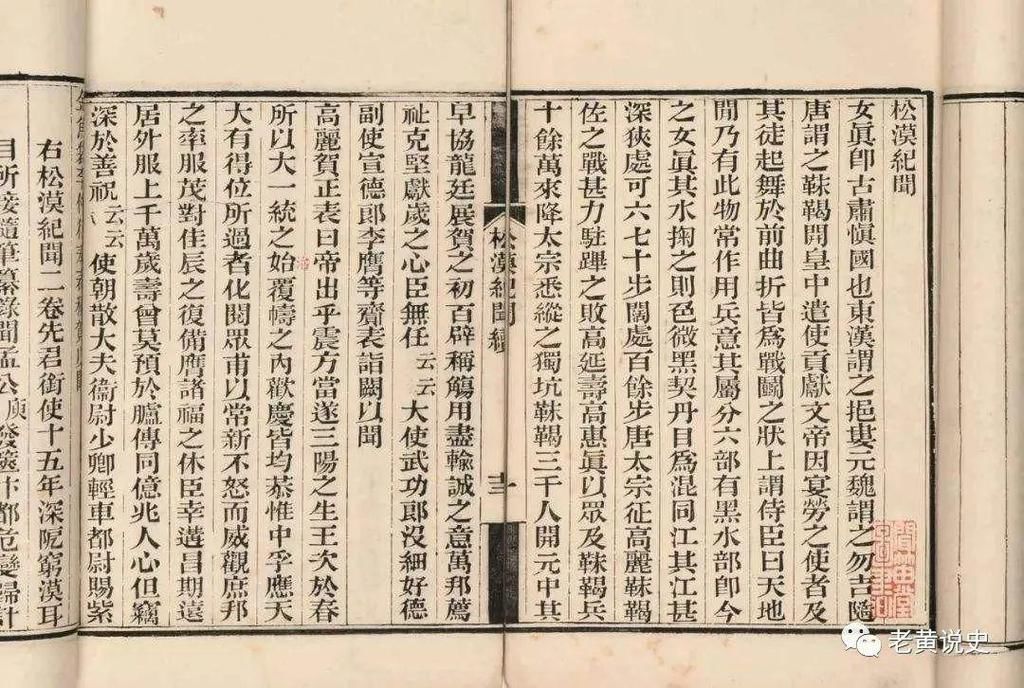 松漠紀聞
女眞卽古肅愼國也東漢謂之挹婁元魏謂之勿吉隨
唐謂之靺鞨開皇中遣使貢獻文帝因宴勞之使者及
其徒起舞於前曲折皆爲戰鬭之狀上謂侍臣曰天地
閒乃有此物常作用兵意其屬分六部有黑水部卽今
之女眞其水掬之則色微黑契丹目爲混同江其江甚
深狹處可六七十步闊處百餘步唐太宗征高麗靺鞨
佐之戰甚力駐蹕之敗高延壽高惠眞以眾及靺鞨兵
十餘萬來降太宗悉縱之獨坑靺鞨三千人開元中其
松漠紀聞續
早協龍廷展賀之初百辟稱觴用盡輸誠之意萬邦薦
祉克堅獻歲之心臣無任云云大使武功郎沒細好德
副使宣德郎李膺等齎表詣闕以聞
高麗賀正表曰帝出乎震方當遂三陽之生王次於春
所以大一統之始覆幬之內歡慶皆均恭惟中孚應天
大有得位所過者化閱眾甫以常新不怒而威觀庶邦
之率服茂對佳辰之復備膺諸福之休臣幸遘昌期遠
居外服上千萬歲壽曾莫預於臚傳同億兆人心但竊
深於善祝云云使朝散大夫衞尉少卿輕車都尉賜紫
右松漠紀聞二卷先君銜使十五年深阨窮漠耳
目所接隨筆纂錄聞孟公庾發篋汴都危變歸計
老黄说史